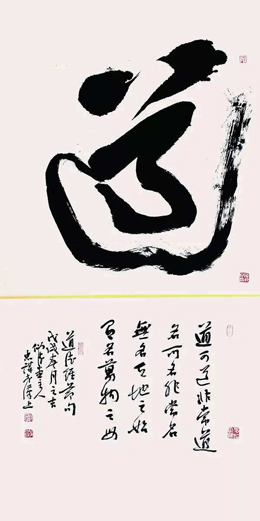 道
道可道非常道
名可名非常名
無名天地之始
有名萬物之母
道德經
戊戌春月之吉